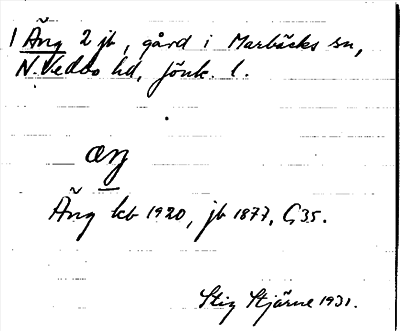 1 Äng 2 jb, gård i Marbäcks sn,
N. Vedbo hd, Jönk. l.
æŋ
Äng kb 1920, jb 1877, G35.
Stig Stjärne 1931.